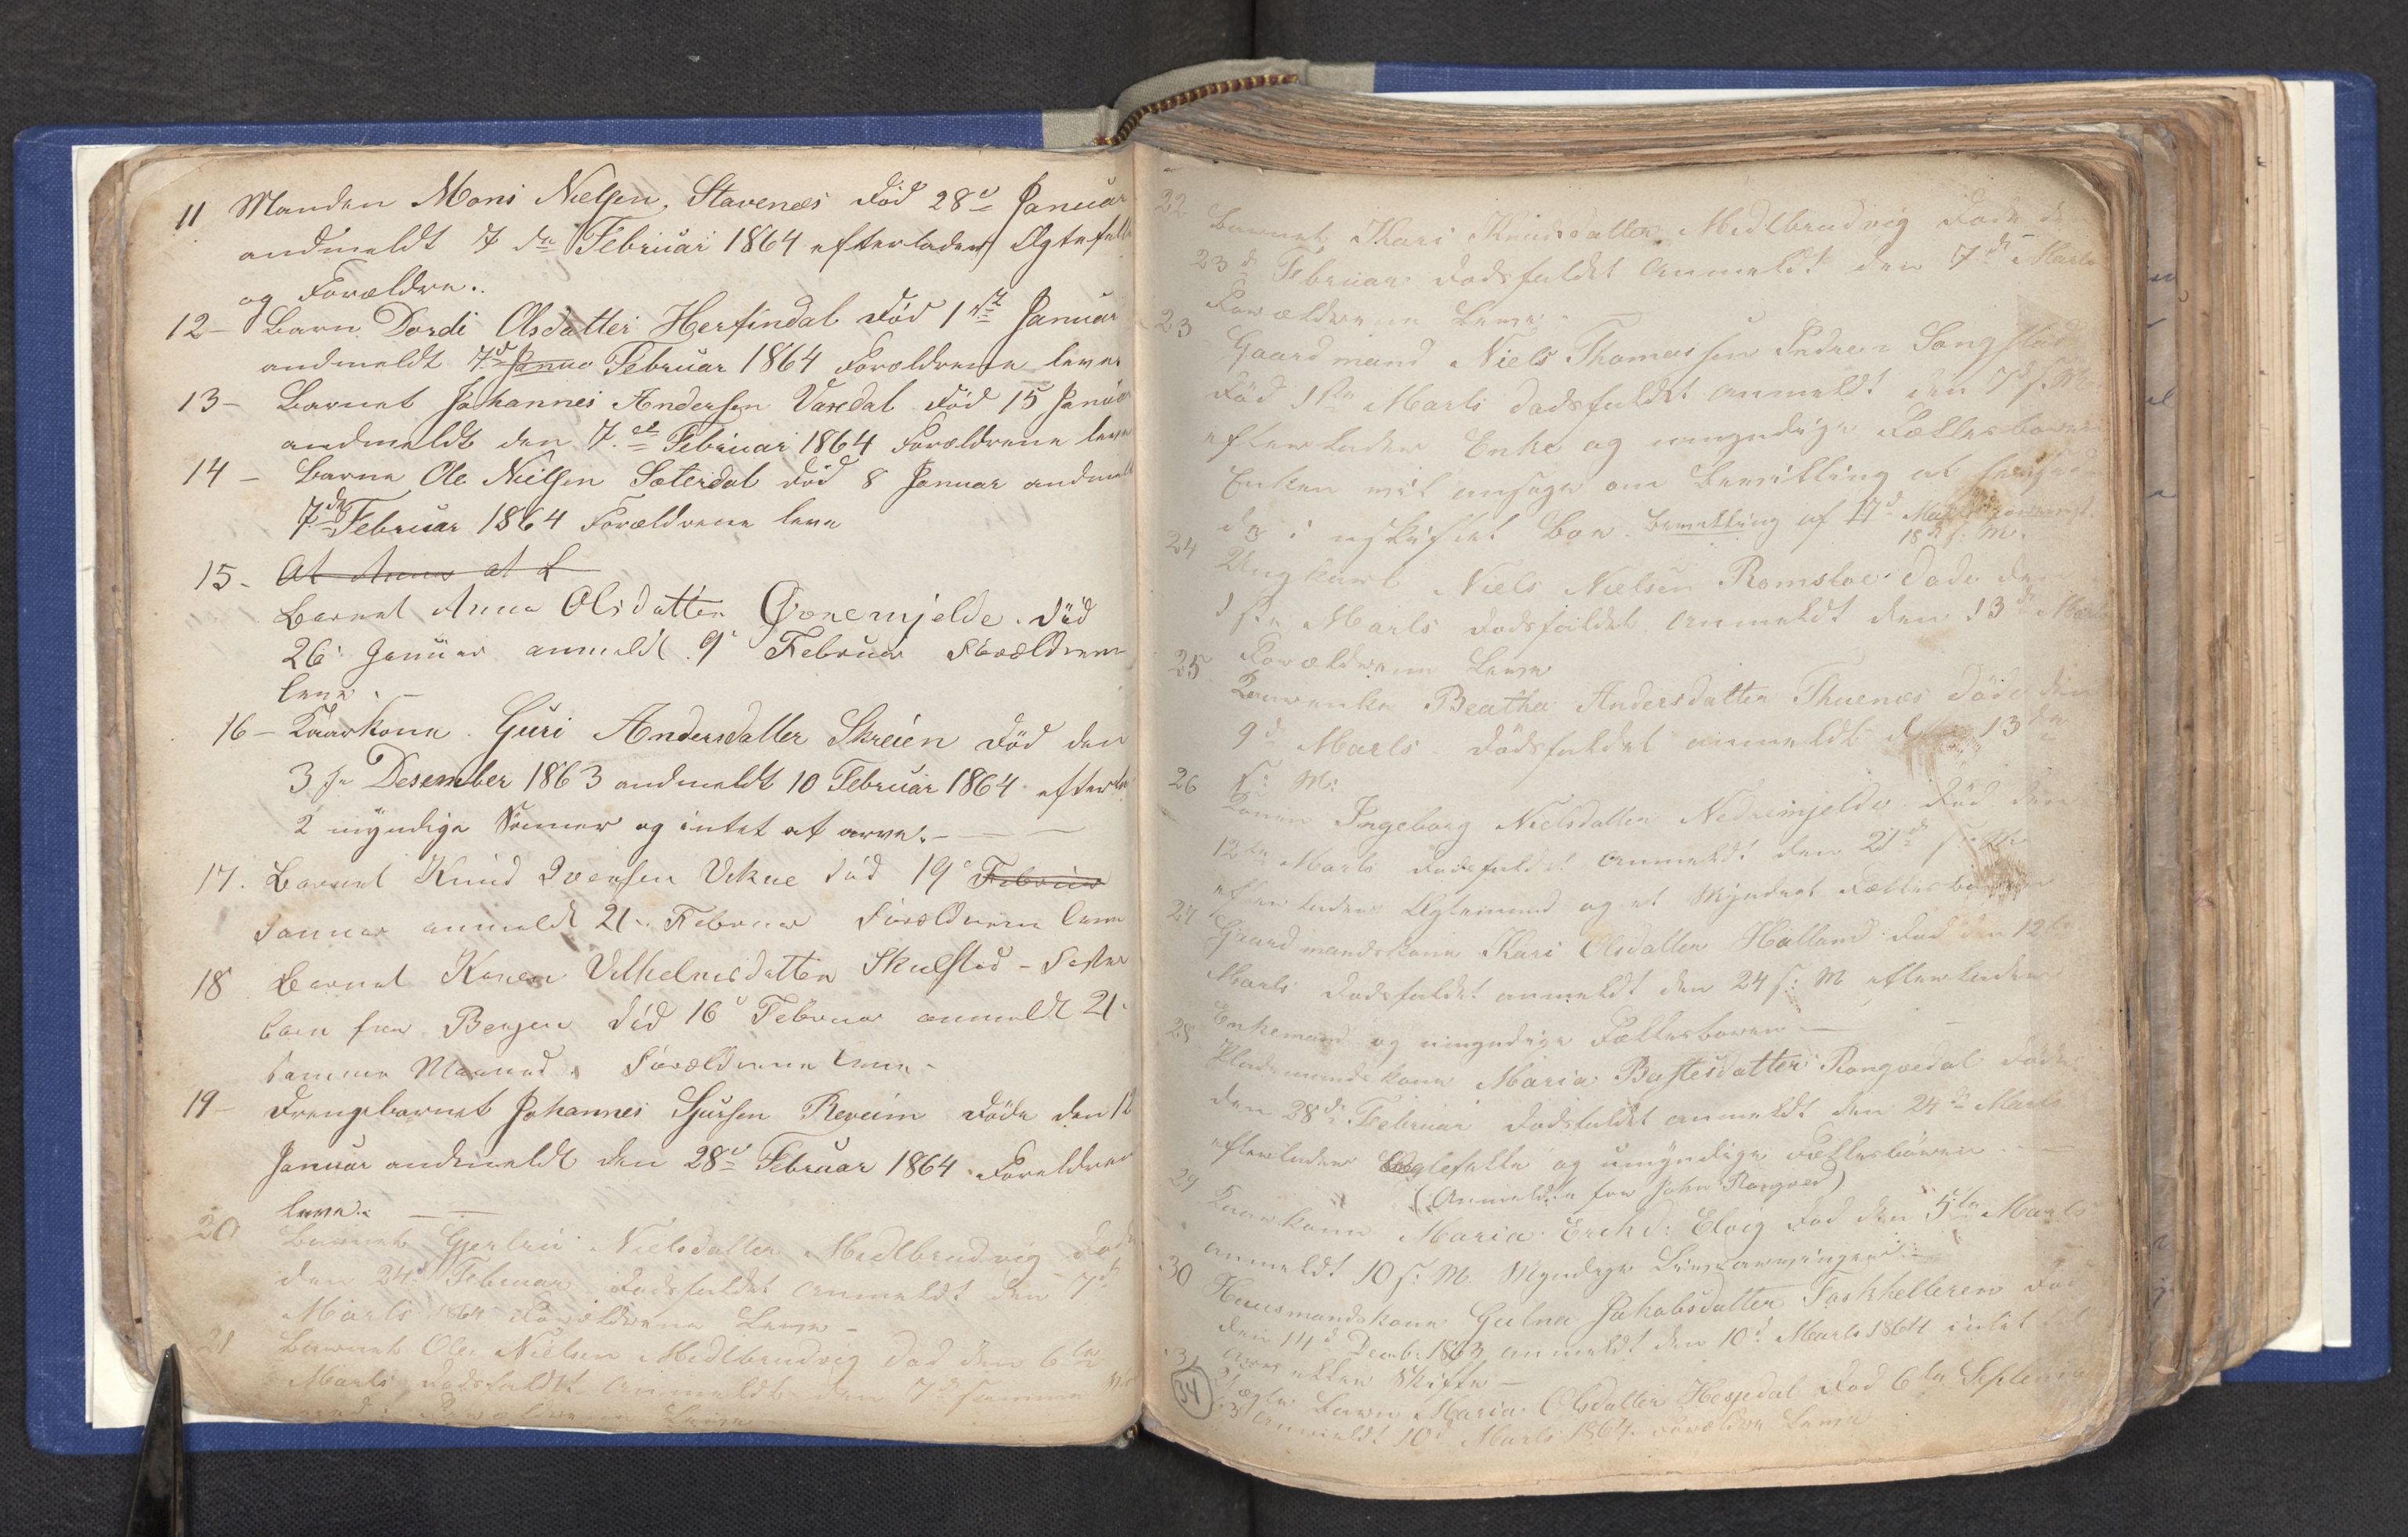 11 Manden Mons Nielsen Stavenæs død 28d Januar
andmeldt 7 de Februar 1864 efterlader Ægtefelle
og Forældre.
12- Barn Dordi Olsdatter Herfindal død 1ste Januar
andmeldt 7d Janua Februar 1864 Forældrene lever
13- Barnet Johannes Andersen Vaxdal død 15 Januar
andmeldt den 7de Februar 1864 Forældrene leve
14- Barne Ole Nielsen Sæterdal død 8 Januar andmeldt
7de Februar 1864 Forældrene leve
15- At Anna at
Barnet Anna Olsdatter Øvremjelde. død
26 Januar anmeldt 9 Februar Forældrene
leve. -
16- Kaarkone Guri Andersdatter Skreien død den
3de Desember 1863 andmeldt 10 Februar 1864 efterla
2 myndige Sønner og intet at arve. -
17. Barnet Knud Iversen Vikne død 19 Februar
Januar anmeldt 21 Februar Forældrene leve
18 Barnet Karen Vilhelmsdatter Skulstad - Foster
barn fra Bergen død 16 Februar anmeldt 21
samme Maaned. Forældrene leve -
19- Drengebarnet Johannes Sjursen Reveim døde den 12
Januar andmeldt den 28d Februar 1864. Foreldrene
leve. -
20 Barnet Gjertrui Nielsdatter Midlbrudvig døde
den 24d Februar Dødsfaldet anmeldt den 7de
Marts 1864 Forældrene Leve -
21 Barnet Ole Nielsen Midlbrudvig død den 6te
Marts dødsfaldet anmeldt den 7d samme
Forældrene Leve
22 Barnet Kari Knudsdatter Midlbrudvig døde den
23d Februar dødsfaldet anmeldt den 7de Marts
Forældrene Leve -
23 Gaardmand Niels Thomassen Indre Songstad
død 1ste Marts dødsfaldet anmeldt den 7d s. M.
efterlader Enke og umyndige Fællesbørn
Enken vil ansøge om Bevilling at hensidde
i uskiftet Bo. Bevilling af 17d Marts
18d s. M.
24 Ungkarl Niels Nielsen Romsloe døde den
1ste Marts dødsfaldet anmeldt den 13de Marts
Forældrene Leve
25 Kaarenke Beatha Andersdatter Thuenæs døde den
9d Marts dødsfaldet anmeldt den 13de
s: M:
26 Konen Ingeborg Nielsdatter Nedremjelde død den
12te Marts dødsfaldet anmeldt den 21d s: M
efterlader Ægtemand og et Myndigt Fællesbarn
27 Gaardmandskone Kari Olsdatter Hålland død den 12te
Marts dødsfaldet anmeldt den 24 s: M efterlader
Enkemand og umyndige Fællesbørn -
28 Pladsmandskone Maria Bastesdatter Rongvedal døde
den 28d Februar dødsfaldet anmeldt den 24d Marts
efterlader Egtefælle og umyndige Fællesbørn. -
(Anmeldte for John Rongved)
29 Kaarkone Maria Erikd: Elvig død den 5te Marts
anmeldt 10 s: M. Myndige Livsarvinger -
30 Huusmandskone Gulna Jakobsdatter Foskhelleren død
den 14d Decembr 1863 anmeldt den 10d Marts 1864 intet at
arve eller Skifte -
31 ægte Barn Maria Olsdatter Hespedal død 6te September
63 anmeldt 10d Marts 1864. Forældre Leve
34